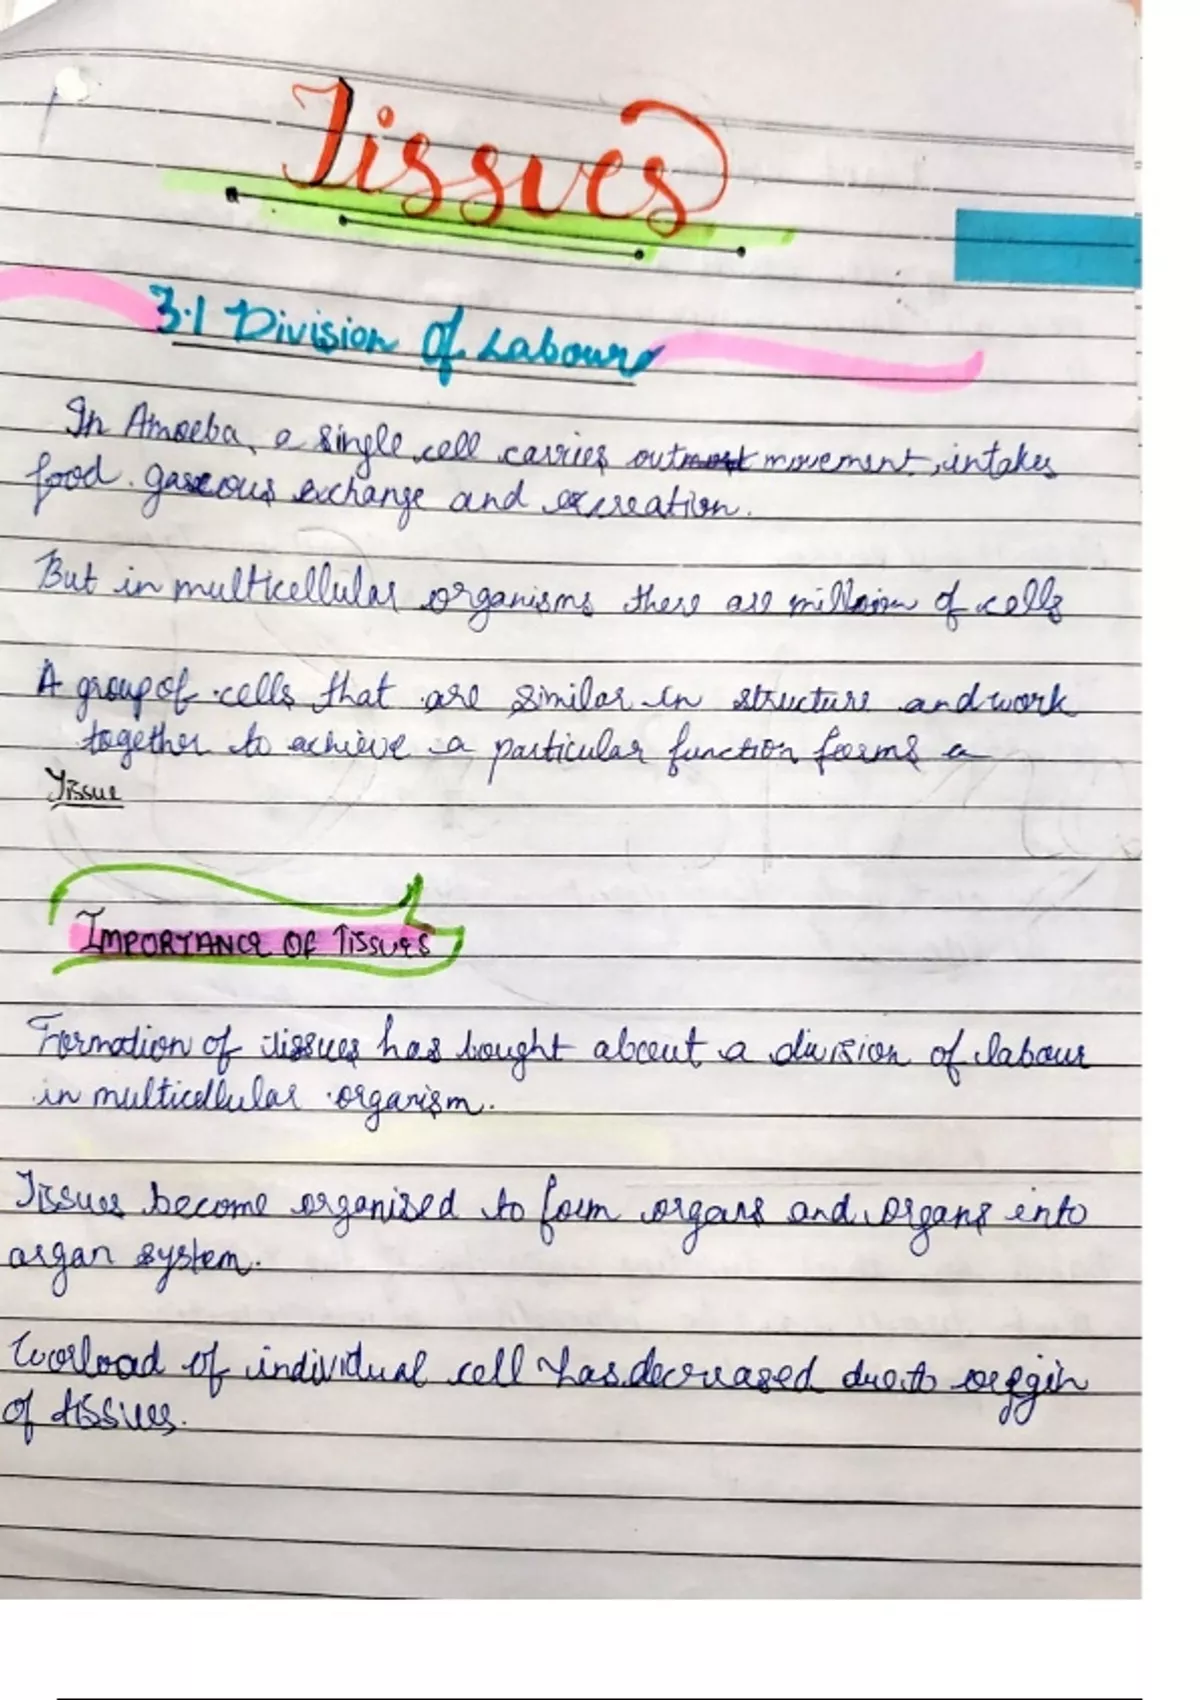 Tissues
3.1 Division of Labour
In Amoeba, a single cell carries out movement, intakes
food. gaseous exchange and excreation.
But in multicellular organisms there are million of cells
A group of cells that are similar in structure and work
together to achieve a particular function forms a
Tissue
IMPORTANCE OF TISSUES
Formation of tissues has bought about a division of labour
in multicellular organism.
Tissues become organised to form organs and organs into
organ system.
Worload of individual cell has decreased due to origin
of tissues.